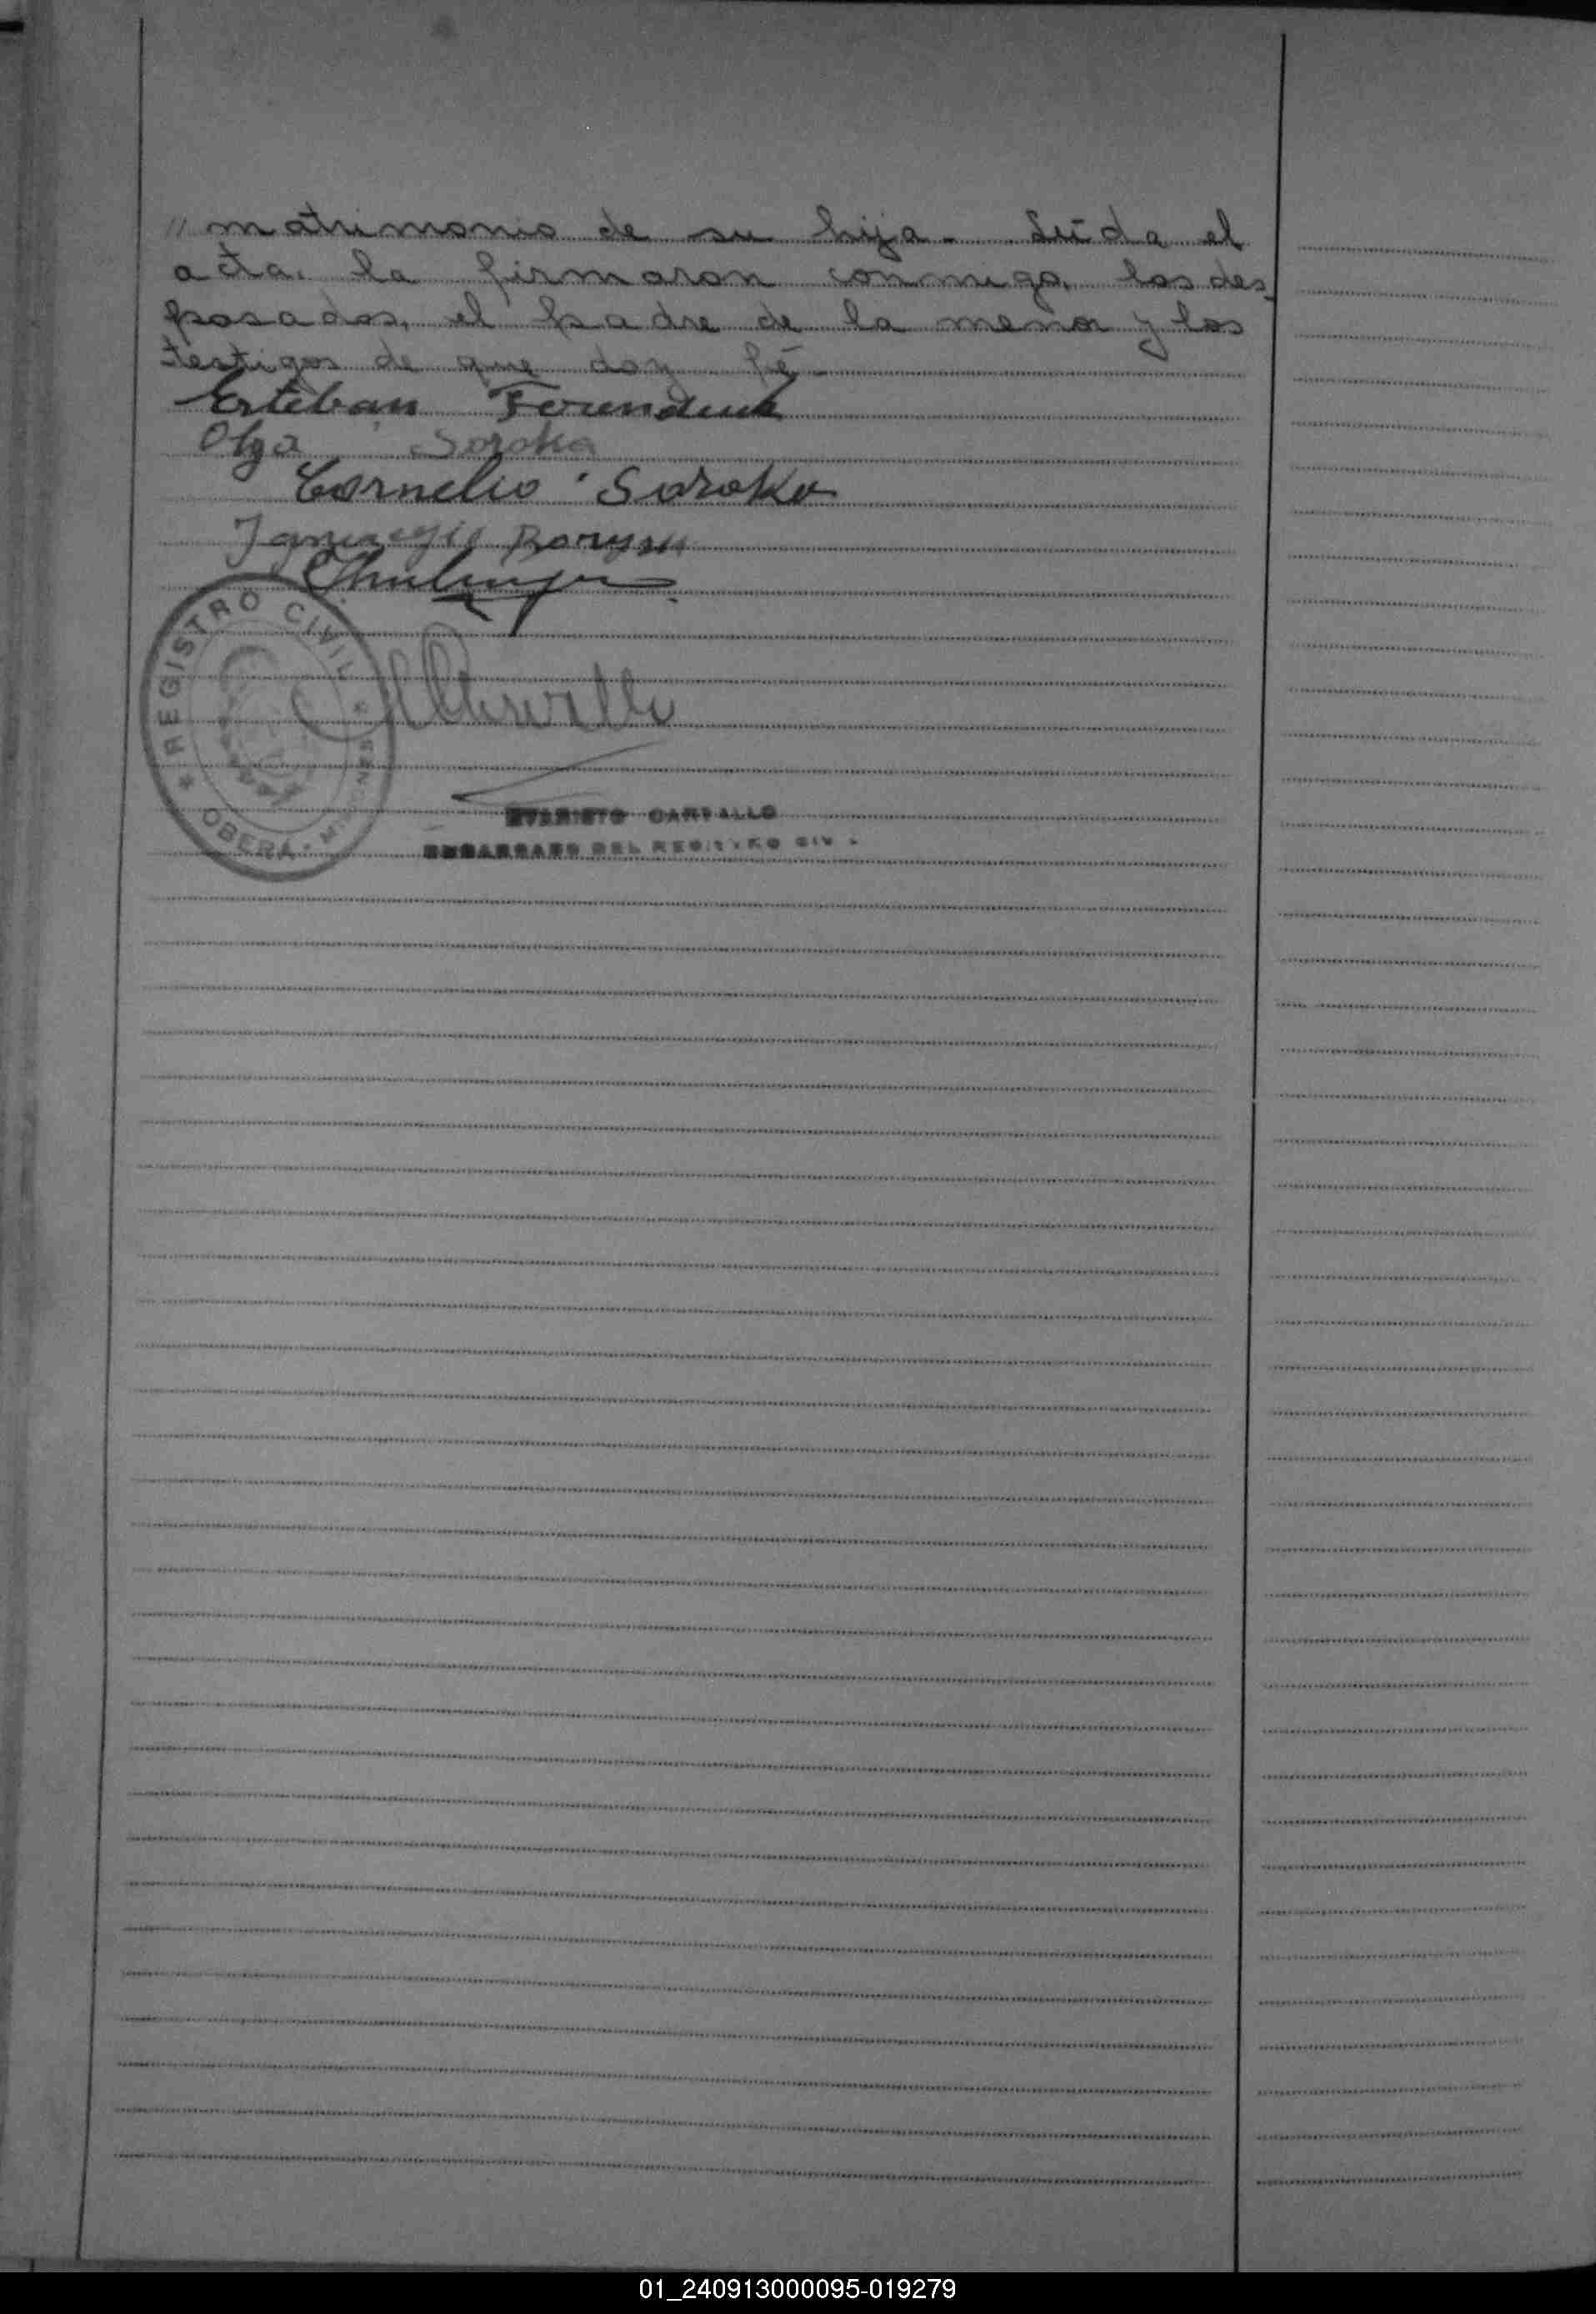 // matrimonio de su hija.- Leída el
acta, la firmaron conmigo, los des_
posados, el padre de la menor y los
testigos de que doy fé.-
Esteban
Olga Soroka
Cornelio Soroka
REGISTRO CIVIL
* OBERA - MISIONES *
EVARISTO CARBALLO
ENCARGADO DEL REGISTRO CIVIL
01_240913000095-019279